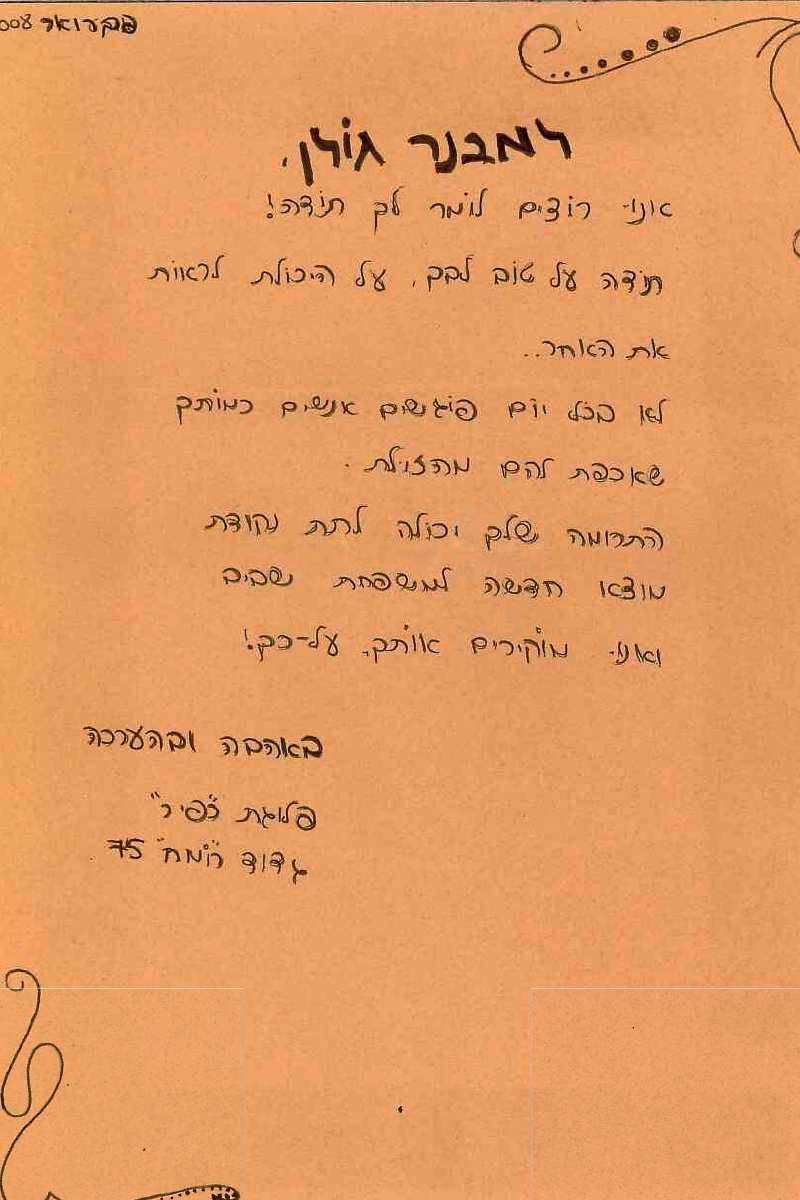 פברואר 2008
למבנר גולן,
אנו רוצים לומר לך תודה!
תודה על טוב לבך, על היכולת לראות
את האחר..
לא בכל יום פוגשים אנשים כמותך
שאכפת להם מהזולת.
התרומה שלך יכולה לתת נקודת
מוצא חדשה למשפחת שביב
ואנו מוקירים אותך על-כך!
באהבה ובהערכה
פלוגת "כפיר"
גדוד "רומח" 75